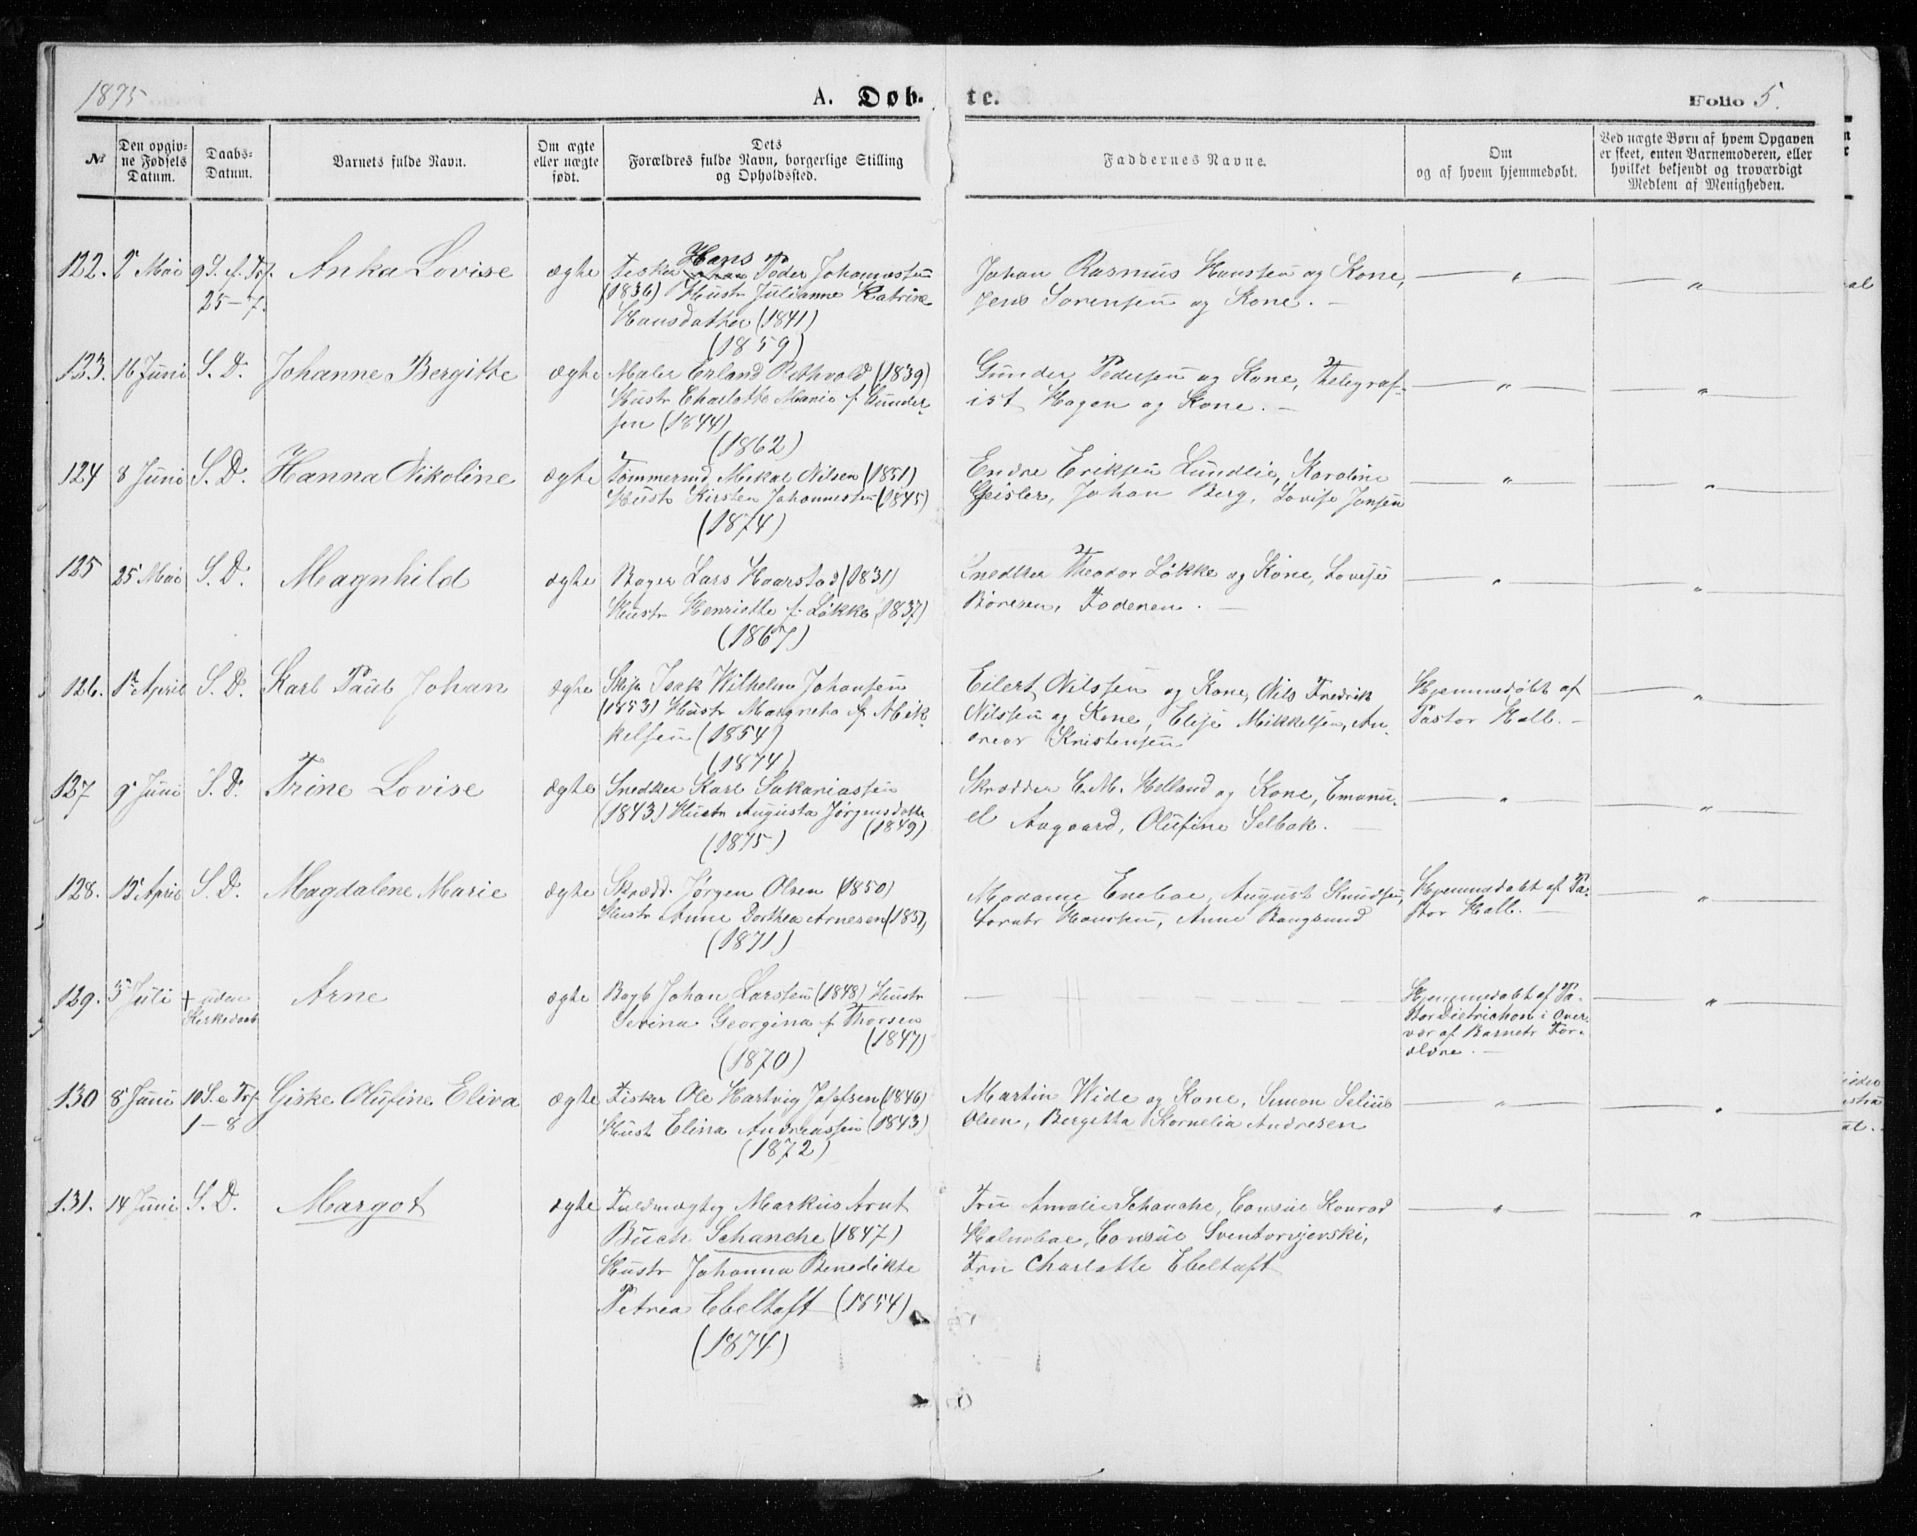 1875
A. Døb- te.
Folio 5.
№
Den opgiv-
ne Fødsels
Datum.
Daabs-
Datum.
Barnets fulde Navn.
Om ægte
eller uægte
født.
Dets
Forældres fulde Navn, borgerlige Stilling
og Opholdssted.
Faddernes Navne.
Om
og af hvem hjemmedøbt.
Ved uægte Børn af hvem Opgaven
er skeet, enten Barnemoderen, eller
hvilket bekjendt og troværdigt
Medlem af Menigheden.
122. Mai 9 S. f. Trf. Anka Lovise ægte Fisker Hans Peder Johannessen
25-7. (1836) Hustr Julianne Katrine
Hansdatter (1841)
(1859)
Johan Rasmus Hanssen og Kone,
Jens Sørensen og Kone. —
— " — — " —
123. 16 Juni S. D. Johanne Bergitte ægte Maler Erland Rethvold (1839)
Hustr Charlotte Marie f. Gunder-
sen (1844)
(1862)
Gunder Pedersen og Kone, Telegraf-
ist Hagen og Kone. —
— " — — " —
124 8 Juni S. D. Hanna Nikoline ægte Tømmermd Mikal Nilsen (1851)
Hustr Kirsten Johannessen (1845)
(1874)
Endre Eriksen Lundlie, Karoline
Geisler, Johan Berg, Lovise Jonsen
— " — — " —
125 25 Mai S. D. Magnhild ægte Bager Lars Haarstad (1831)
Hustr Henriette f. Løkke (1837)
(1867)
Snedker Theodor Løkke og Kone, Lovise
Børresen, Faderen. —
— " — — " —
126. April S. D. Karl Paul Johan ægte Skipr Isak Wilhelm Johansen
(1853) Hustr Margretha f. Mik-
kelsen (1854)
(1874)
Eilert Nilssen og Kone, Nils Fredrik
Nilssen og Kone, Elise Mikkelsen, An-
dreas Kristensen
Hjemmedøbt af
Pastor Hall. —
— " —
127 9 Juni S. D. Trine Lovise ægte Snedker Karl Sakariassen
(1843) Hustr Augusta Jørgensdatter
(1849)
(1875)
Skrædder E. M. Helland og Kone, Emanu-
el Aagaard, Olufine Selbak. —
— " — — " —
128. 12 April S. D. Magdalene Marie ægte Skrædd. Jørgen Olsen (1850)
Hustr Anne Dorthea Arnesen (185
(1871)
Madame Enebae, August Knudsen,
Hanssen, Anne Bangsund
Hjemmedøbt af Pa-
stor Hall. —
— " —
129. 5 Juli + uden Arne ægte Bogb Johan Larssen (1848) Hustr
Kirkedaab Serina Georgina f. Thorsen
(1847)
(1870)
Hjemmedøbt af Pa-
stor Dietrichson i Over-
vær af Barnets For-
ældre. —
— " —
130 8 Juni 10 S. e. Trf. Giske Olufine Elina ægte Fisker Ole Hartvig Jakobsen (1846)
1-8 Hustr Elina Andreassen (1843)
(1872)
Martin Wide og Kone, Simon Selius
Olsen, Bergitta Kornelia Andresen
— " — — " —
131. 14 Juni S. D. Margot ægte Fuldmægtig Markus Arnt
Buch Schanche (1847)
Hustr Johanna Benedikte
Petrea Ebeltoft (1854)
(1874)
Fru Amalie Schanche, Consul Konrad
Holmboe, Consul
Fru Charlotte Ebeltoft
— " — — " —